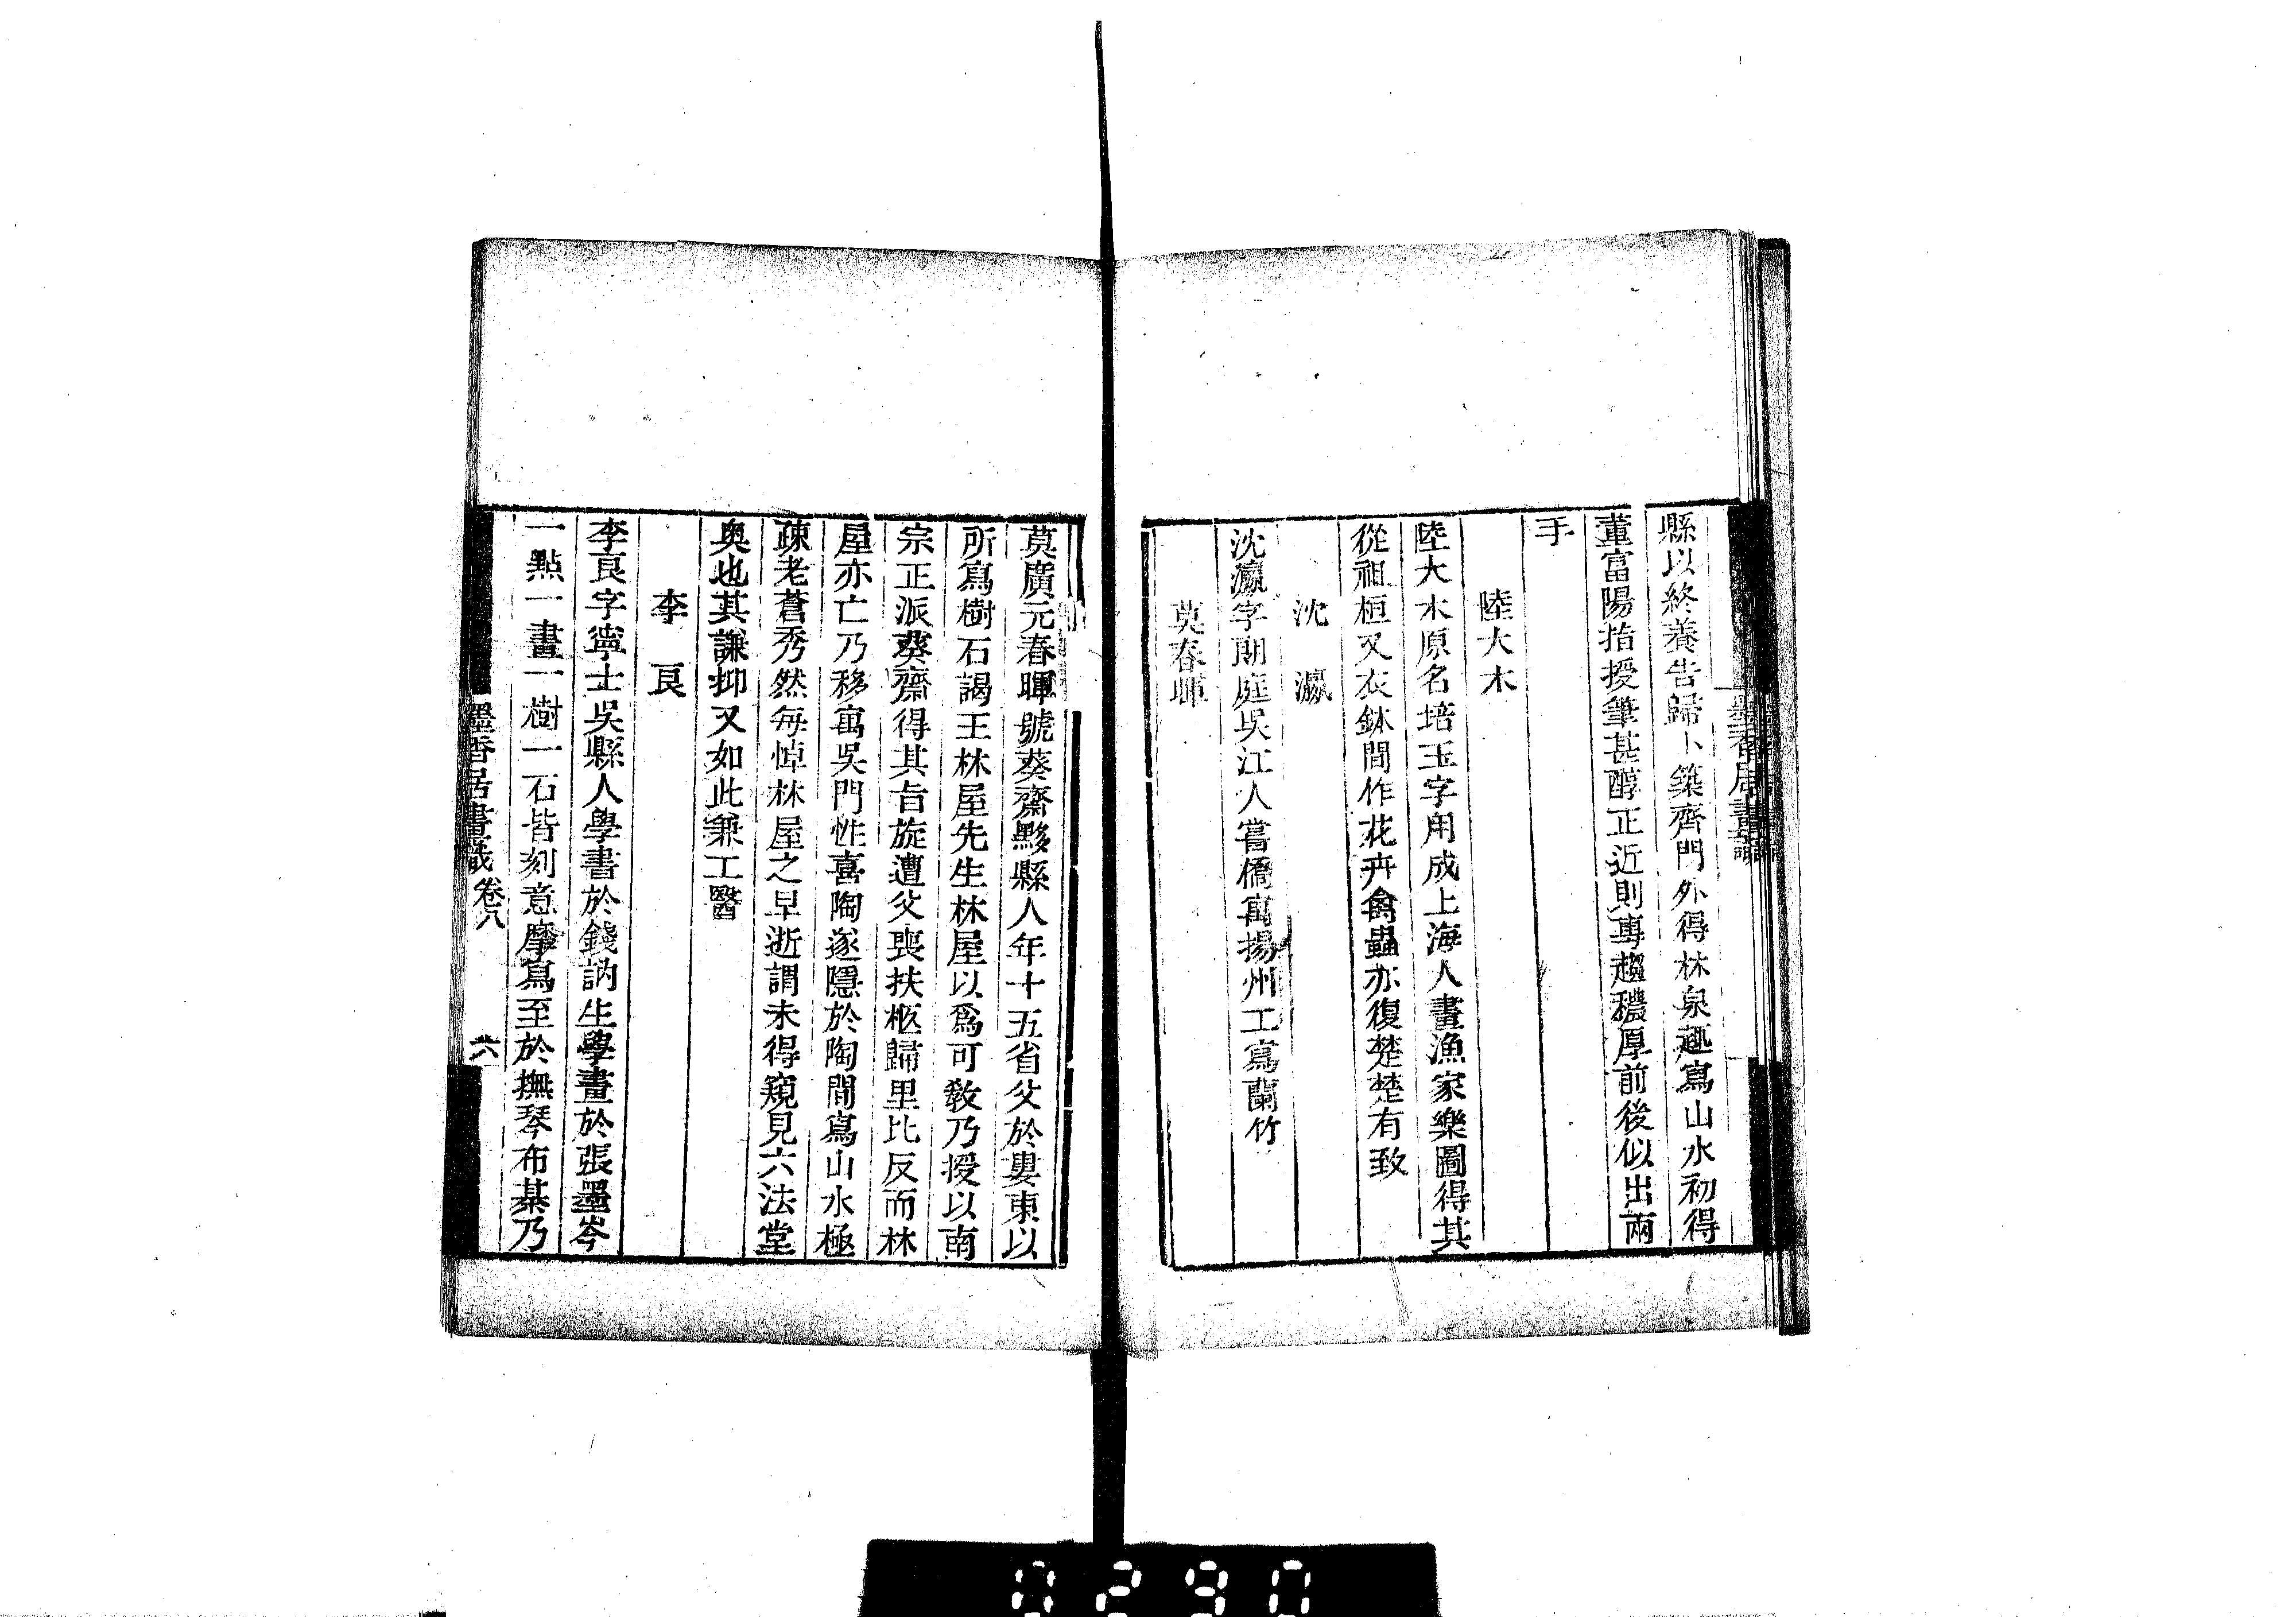 縣以終養告歸卜築齊門外得林泉趣寫山水初得
董富陽指授筆甚醇正近則專趨穠厚前後似出兩
手
陸大木
陸大木原名培玉字用成上海人畫漁家樂圖得其
從祖桓又衣鉢間作花卉禽蟲亦復楚楚有致
沈瀛
沈瀛字閬庭吳江人嘗僑寓揚州工寫蘭竹
莫春暉
莫廣元春暉號葵齋黟縣人年十五省父於婁東以
所寫樹石謁王林屋先生林屋以爲可教乃授以南
宗正派葵齋得其旨旋遭父喪扶柩歸里比反而林
屋亦亡乃移寓吳門性喜陶遂隱於陶間寫山水極
疎老蒼秀然每悼林屋之早逝謂未得窺見六法堂
奧也其謙抑又如此兼工醫
李良
李良字寧士吳縣人學書於錢訥生學畫於張墨岑
一點一畫一樹一石皆刻意摩寫至於撫琴布棊乃
墨香居畫識 卷八 六
0290